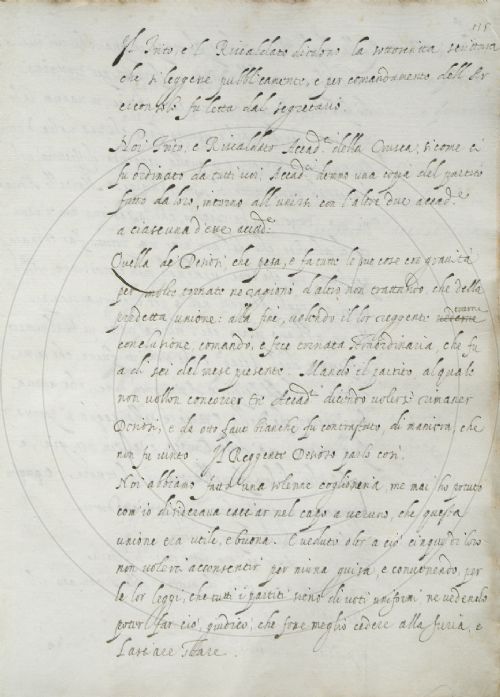 115
Il Trito, e 'l Riscaldato dicdono la sottoscritta scrittura
che si leggesse pubblicamente, e per comandamento dell' Ar
ciconsolo fu letta dal segretario.
Noi Trito, e Riscaldato Accad.ci della Crusca, sicome ci
fu ordinato da tutti voi Accad.ci demmo una copia del partito
fatto da loro, intorno all' unirsi con l'altre due accad.e
a ciascuna d'esse accad.e
Quella de' Desiosi che pesa, e fa tutte le sue cose con gravità
per molte tornate ne ragionò d'altro non trattando, che della
predetta unione: alla fine, volendo il lor reggente vederne
conclusione, comandò, e fece tornata straordinaria, che fu
a dì sei del mese presente. Mandò il partito, al quale
non vollon concorrer tre Accad.ci dicendo volersi rimaner
Desiosi, e da otto fave bianche fu contrafatto, di maniera, che
non fu vinto. Il Reggente Desioso parlò così.
Noi abbiamo fatto una solenne coglioneria, ne mai ho potuto
com' io desiderava cacciar nel capo a veruno, che questa
unione era utile, e buona. E veduto oltr' a ciò cinque di loro
non volervi acconsentir per niuna guisa, e convenendo, per
le lor leggi, che tutti i partiti sieno di voti uniformi, ne vedendo
poter far ciò, giudicò, che fosse meglio cedere alla furia, e
lasciare stare.